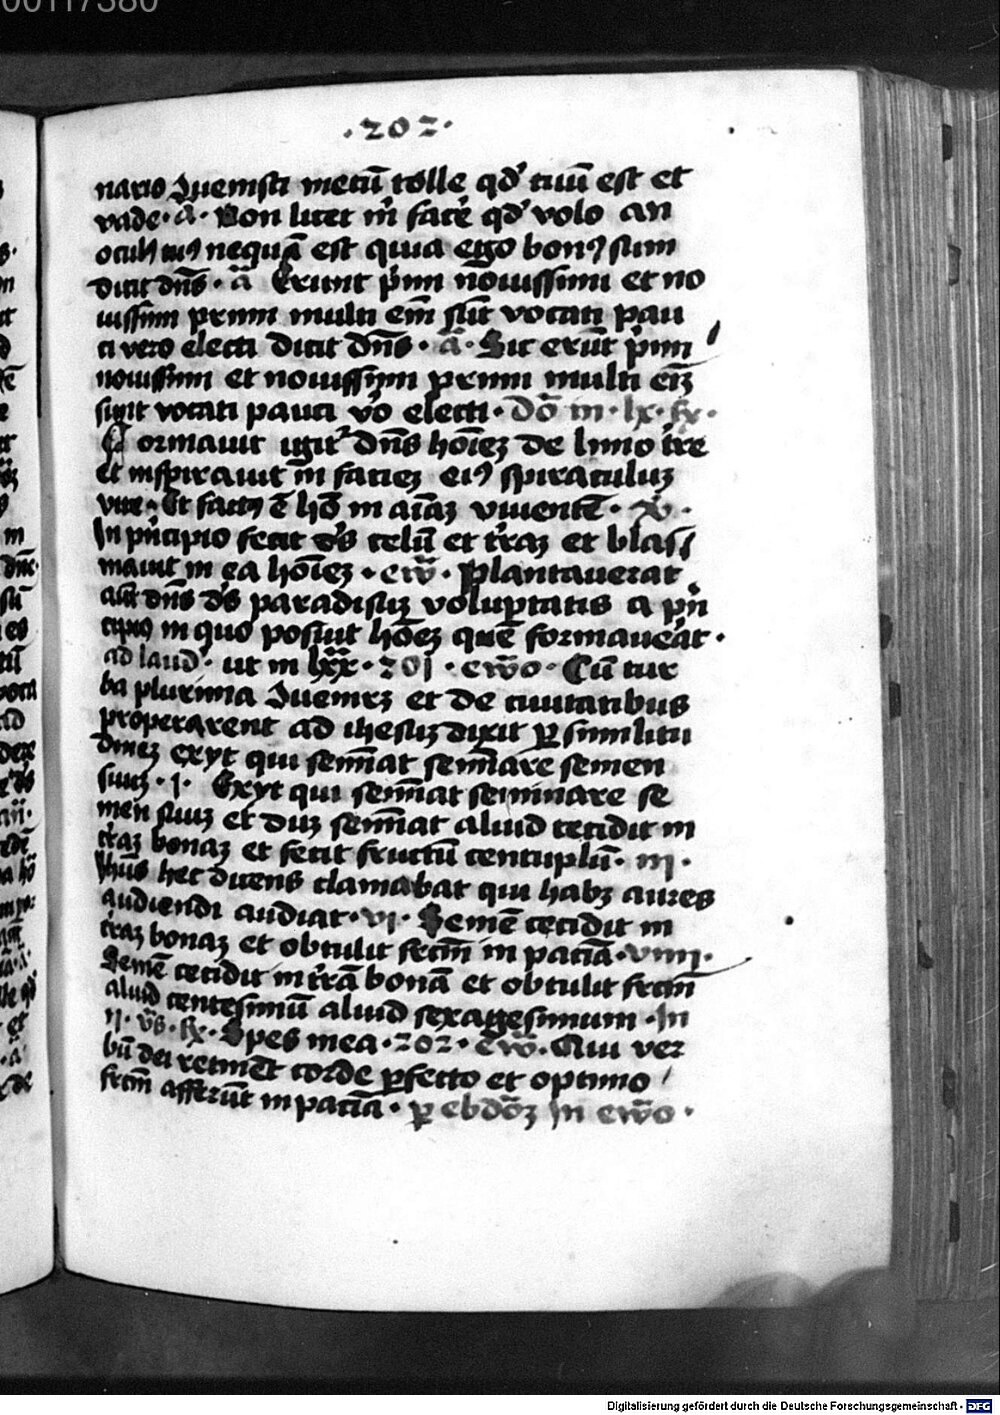 00117380
·202·
nario Juenisti mecū tolle qđ tuū est et
vade· a̅· Non licet m̅ facere qđ volo an
oculꝰ tuꝰ nequā est quia ego bonꝰ sum
dicit dn̄s· a̅ Erunt pͥmi nouissimi et no
uissimi primi multi em̄ sūt vocati pau
ci vero electi dicit dn̄s· a̅· Sic erūt pͥmi
nouissimi et nouissymi primi multi eīꝫ
sunt vocati pauci vo electi· Do̅ in·lx·
Formauit igitͬ dn̄s hoīeꝫ de limo tͬre
et inspirauit in facieꝫ eiꝰ spiraculuꝫ
vite· Et factꝰ ē ho in aīaꝫ viuentē·
In pͥncipio fecit ds̄ celū et tͬraꝫ et plas
mauit in ea hoīeꝫ· ew̄· Plantauerat
aūt dn̄s ds̄ paradisuꝫ voluptatis a pͥn
cipio in quo posuit hoīeꝫ quē formauerat·
ad laud· ut in lxx·201· ew̄o· Cū tur
ba plurima Juenirꝫ et de ciuitatibus
properarent ad ihesuꝫ dixit ꝑ similitu
dineꝫ exyt qui semīat semīare semen
suuꝫ· 1· Exyt qui semīat seminare se
men suuꝫ et duꝫ semīat aliud cecidit in
tͬraꝫ bonaꝫ et fecit fructū centuplū· iij·
Jhūs hec dicens clamabat qui habꝫ aures
audiendi audiat· vi· Semē cecidit in
tͬraꝫ bonaꝫ et obtulit frc̄m in paciā· viiij·
Semē cecidit in tͬrā bonā et obtulit frc̄m
aliud centesimū aliud sexagesimum· In
ij· vs̄· Spes mea·202· ew̄· Qui ver
bū dei retinēt corde ꝑfecto et optimo
frc̄m afferūt in paciā· ꝑ ebdōꝫ in ew̄o·
Digitalisierung gefördert durch die Deutsche Forschungsgemeinschaft - DFG